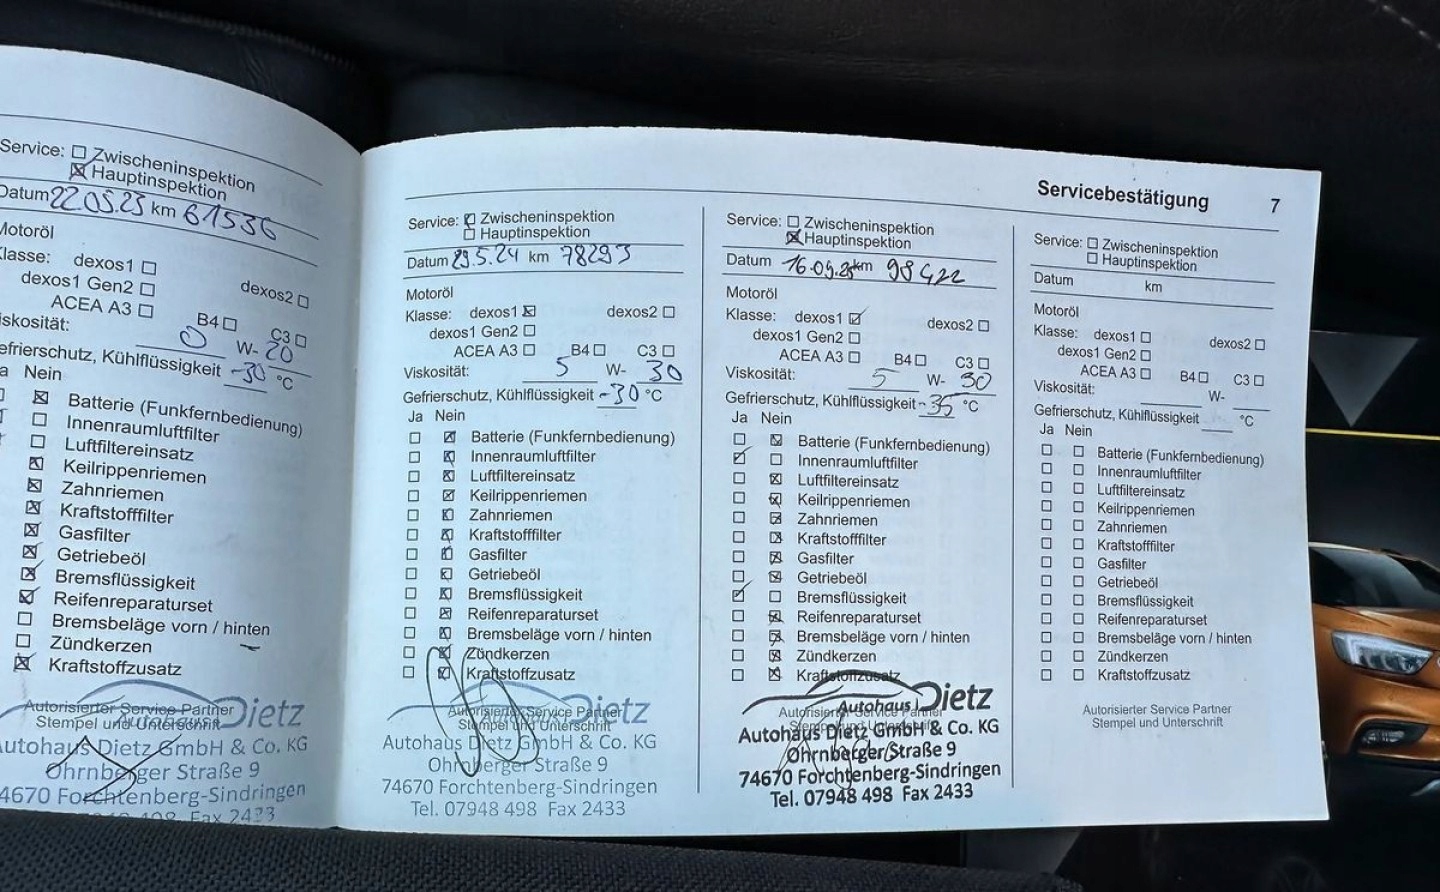 Service: Zwischeninspektion
Hauptinspektion
Datum 22.05.23 km 61536
Motoröl
Klasse: dexos1
dexos1 Gen2 dexos2
ACEA A3 B4 C3
Viskosität: 0 W- 20
Gefrierschutz, Kühlflüssigkeit -30 °C
Ja Nein
Batterie (Funkfernbedienung)
Innenraumluftfilter
Luftfiltereinsatz
Keilrippenriemen
Zahnriemen
Kraftstofffilter
Gasfilter
Getriebeöl
Bremsflüssigkeit
Reifenreparaturset
Bremsbeläge vorn / hinten
Zündkerzen
Kraftstoffzusatz
Autorisierter Service Partner
Stempel und Unterschrift
Autohaus Dietz
Autohaus Dietz GmbH & Co. KG
Ohrnberger Straße 9
74670 Forchtenberg-Sindringen
498 Fax 2433
Servicebestätigung 7
Service: Zwischeninspektion
Hauptinspektion
Datum 29.5.24 km 78293
Motoröl
Klasse: dexos1 dexos2
dexos1 Gen2
ACEA A3 B4 C3
Viskosität: 5 W- 30
Gefrierschutz, Kühlflüssigkeit -30 °C
Ja Nein
Batterie (Funkfernbedienung)
Innenraumluftfilter
Luftfiltereinsatz
Keilrippenriemen
Zahnriemen
Kraftstofffilter
Gasfilter
Getriebeöl
Bremsflüssigkeit
Reifenreparaturset
Bremsbeläge vorn / hinten
Zündkerzen
Kraftstoffzusatz
Autorisierter Service Partner
Stempel und Unterschrift
Autohaus Dietz
Autohaus Dietz GmbH & Co. KG
Ohrnberger Straße 9
74670 Forchtenberg-Sindringen
Tel. 07948 498 Fax 2433
Service: Zwischeninspektion
Hauptinspektion
Datum 16.09.25 km 98422
Motoröl
Klasse: dexos1 dexos2
dexos1 Gen2
ACEA A3 B4 C3
Viskosität: 5 W- 30
Gefrierschutz, Kühlflüssigkeit -35 °C
Ja Nein
Batterie (Funkfernbedienung)
Innenraumluftfilter
Luftfiltereinsatz
Keilrippenriemen
Zahnriemen
Kraftstofffilter
Gasfilter
Getriebeöl
Bremsflüssigkeit
Reifenreparaturset
Bremsbeläge vorn / hinten
Zündkerzen
Kraftstoffzusatz
Autorisierter Service Partner
Stempel und Unterschrift
Autohaus Dietz
Autohaus Dietz GmbH & Co. KG
Ohrnberger Straße 9
74670 Forchtenberg-Sindringen
Tel. 07948 498 Fax 2433
Service: Zwischeninspektion
Hauptinspektion
Datum km
Motoröl
Klasse: dexos1 dexos2
dexos1 Gen2
ACEA A3 B4 C3
Viskosität: W-
Gefrierschutz, Kühlflüssigkeit °C
Ja Nein
Batterie (Funkfernbedienung)
Innenraumluftfilter
Luftfiltereinsatz
Keilrippenriemen
Zahnriemen
Kraftstofffilter
Gasfilter
Getriebeöl
Bremsflüssigkeit
Reifenreparaturset
Bremsbeläge vorn / hinten
Zündkerzen
Kraftstoffzusatz
Autorisierter Service Partner
Stempel und Unterschrift